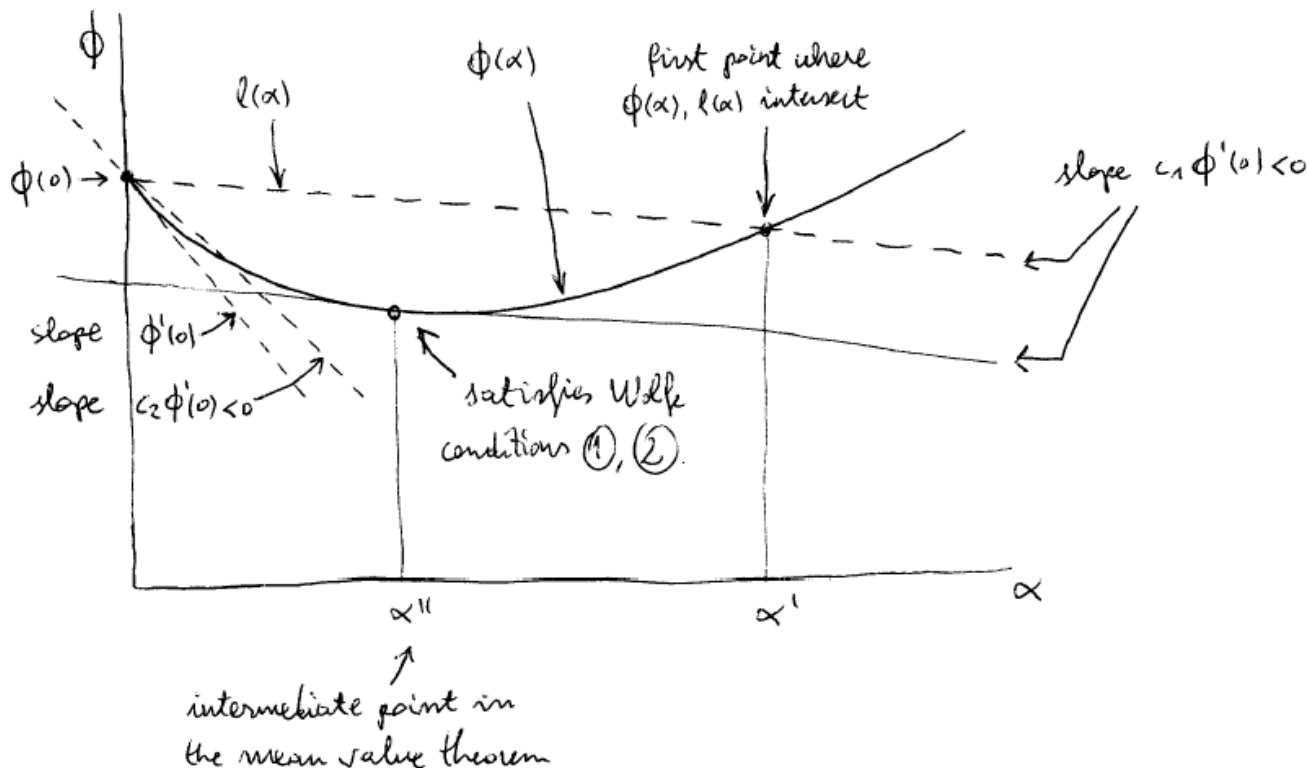 ϕ
ℓ(α)
ϕ(α)
first point where
ϕ(α), ℓ(α) intersect
ϕ(0) →
slope c₁ϕ'(0)<0
slope ϕ'(0)
slope c₂ϕ'(0)<0
satisfies Wolfe
conditions ①, ②.
α''
α'
α
intermediate point in
the mean value theorem